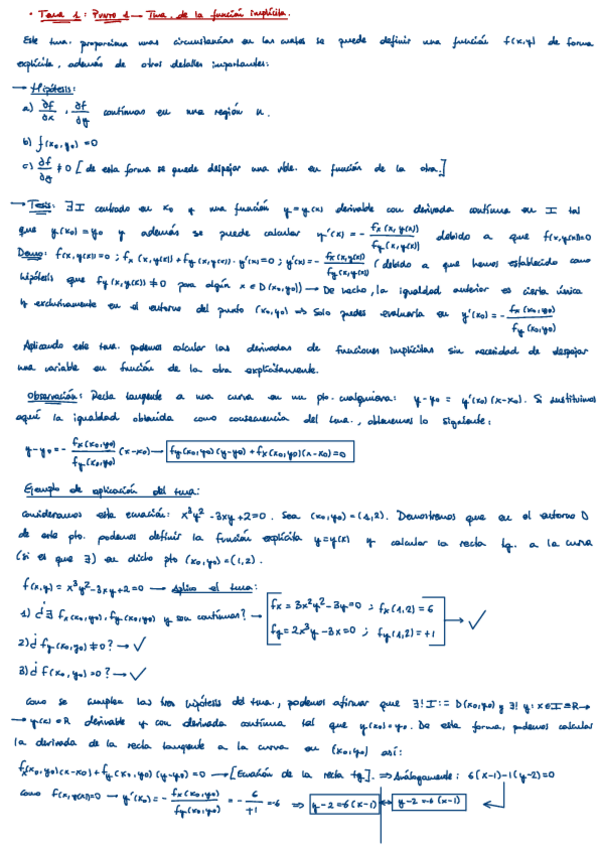 · Tema 1: Punto 1 — Tma. de la función implícita.
Este tma. proporciona unas circunstancias en las cuales se puede definir una función f(x,y) de forma
explícita, además de otros detalles importantes:
→ Hipótesis:
a) ∂f/∂x , ∂f/∂y continuas en una región u.
b) f(x₀,y₀) = 0
c) ∂f/∂y ≠ 0 [de esta forma se puede despejar una vble. en función de la otra.]
→ Tesis: ∃ I centrado en x₀ y una función y = y(x) derivable con derivada continua en I tal
que y(x₀) = y₀ y además se puede calcular y'(x) = - fx(x,y(x))/fy(x,y(x)) debido a que f(x,y(x))=0
Demo: f(x,y(x))=0 ; fx(x,y(x)) + fy(x,y(x))·y'(x)=0 ; y'(x) = - fx(x,y(x))/fy(x,y(x)) (debido a que hemos establecido como
hipótesis que fy(x,y(x)) ≠ 0 para algún x ∈ D(x₀,y₀)) → De hecho, la igualdad anterior es cierta única
y exclusivamente en el entorno del punto (x₀,y₀) ⇒ Solo puedes evaluarla en y'(x₀) = - fx(x₀,y₀)/fy(x₀,y₀)
Aplicando este tma. podemos calcular las derivadas de funciones implícitas sin necesidad de despejar
una variable en función de la otra explícitamente.
Observación: Recta tangente a una curva en un pto. cualquiera: y-y₀ = y'(x₀)(x-x₀). Si sustituimos
aquí la igualdad obtenida como consecuencia del tma., obtenemos lo siguiente:
y-y₀ = - fx(x₀,y₀)/fy(x₀,y₀) (x-x₀) → fy(x₀,y₀)(y-y₀) + fx(x₀,y₀)(x-x₀) = 0
Ejemplo de aplicación del tma:
consideramos esta ecuación: x³y² - 3xy + 2 = 0. Sea (x₀,y₀) = (1,2). Demostremos que en el entorno D
de este pto. podemos definir la función explícita y = y(x) y calcular la recta tg. a la curva
(si es que ∃) en dicho pto (x₀,y₀) = (1,2).
f(x,y) = x³y² - 3xy + 2 = 0 → aplico el tma:
1) ¿∃ fx(x₀,y₀), fy(x₀,y₀) y son continuas? → fx = 3x²y² - 3y = 0 ; fx(1,2) = 6
fy = 2x³y - 3x = 0 ; fy(1,2) = +1 → ✓
2) ¿fy(x₀,y₀) ≠ 0? → ✓
3) ¿f(x₀,y₀) = 0? → ✓
Como se cumplen las tres hipótesis del tma., podemos afirmar que ∃! I := D(x₀,y₀) y ∃! y: x∈I=R→
→ y(x) ∈ R derivable y con derivada continua tal que y(x₀) = y₀. De esta forma, podemos calcular
la derivada de la recta tangente a la curva en (x₀,y₀) así:
fx(x₀,y₀)(x-x₀) + fy(x₀,y₀)(y-y₀) = 0 → [Ecuación de la recta tg.]. ⇒ Análogamente: 6(x-1) - 1(y-2) = 0
como f(x,y(x))=0 → y'(x₀) = - fx(x₀,y₀)/fy(x₀,y₀) = - 6/+1 = -6 ⇒ y-2 = -6(x-1) ↔ y-2 = -6(x-1)